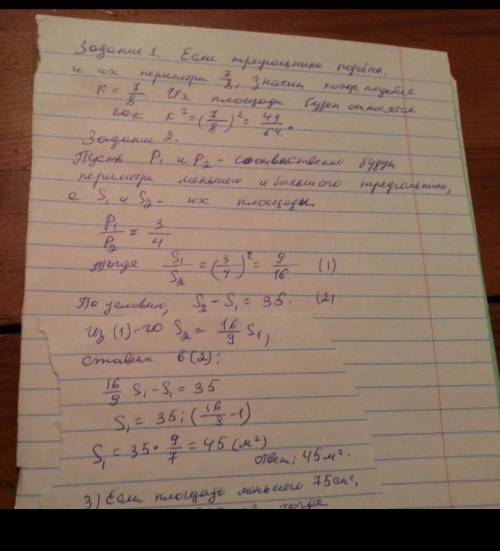 Задание 1. Если треугольники подобны.
и их периметры 7/8, Значит коэф. подобия
K = 7/8. Их площади будет относятся
как K² = (7/8)² = 49/64.
Задание 2.
Пусть P₁ и P₂ - соотвественно будут
периметра меньшего и большого треугольника,
а S₁ и S₂ - их площади
P₁/P₂ = 3/4
Тогда S₁/S₂ = (3/4)² = 9/16. (1)
По условию, S₂ - S₁ = 35. (2)
Из (1)-го S₂ = 16/9 S₁,
ставим в (2):
16/9 S₁ - S₁ = 35
S₁ = 35 : (16/9 - 1)
S₁ = 35 * 9/7 = 45 (м²)
ответ: 45 м².
3) Если площадь меньшего 75 см²,
тогда